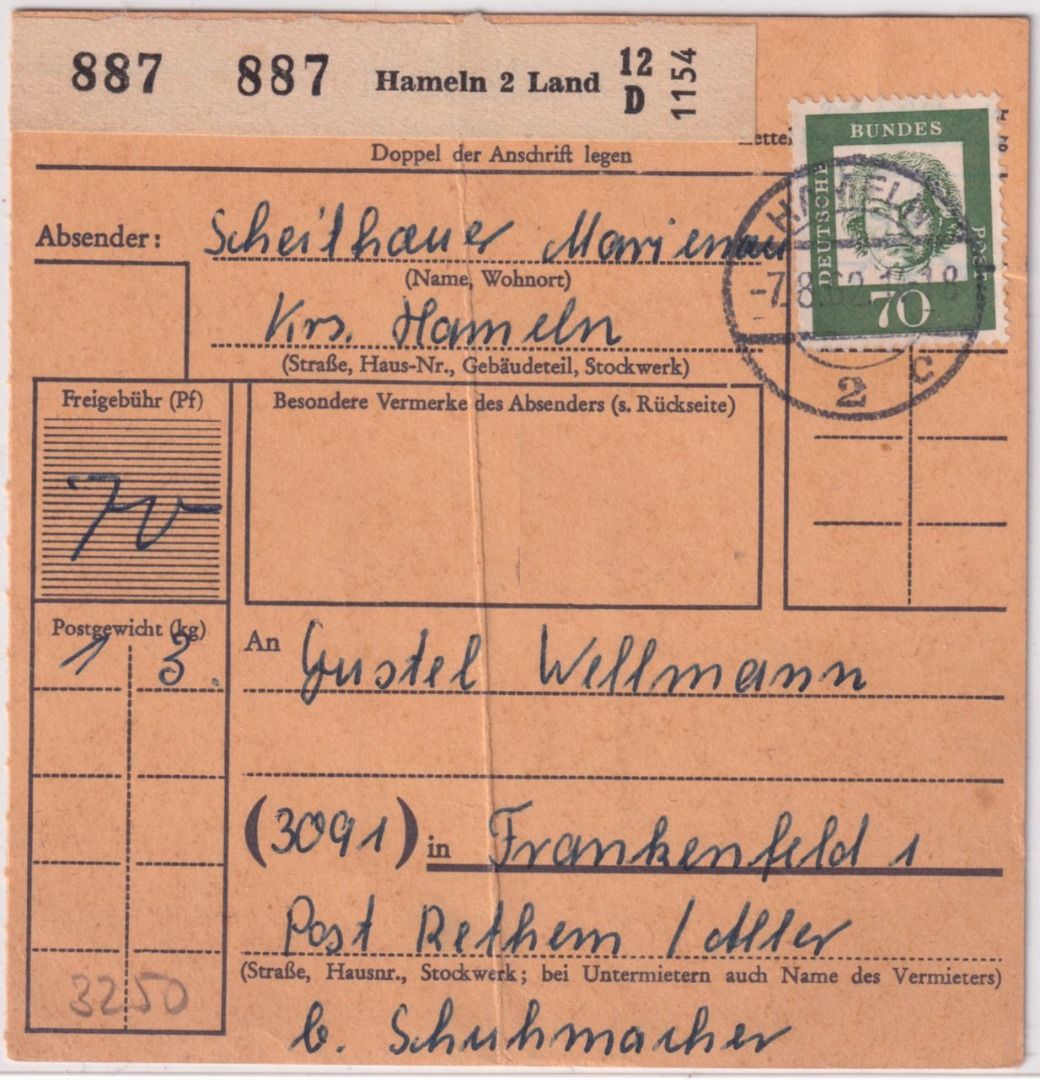 887 887 Hameln 2 Land 12 D 1154
Doppel der Anschrift legen
BUNDES
DEUTSCHE
70
HAMELN
2 c
Absender: Scheilhauer Marienau
(Name, Wohnort)
Krs. Hameln
(Straße, Haus-Nr., Gebäudeteil, Stockwerk)
Freigebühr (Pf)
Besondere Vermerke des Absenders (s. Rückseite)
70
Postgewicht (kg)
1 3
An Gustel Wellmann
(3091) in Frankenfeld 1
Post Rethem / Aller
(Straße, Hausnr., Stockwerk; bei Untermietern auch Name des Vermieters)
3250
b. Schuhmacher